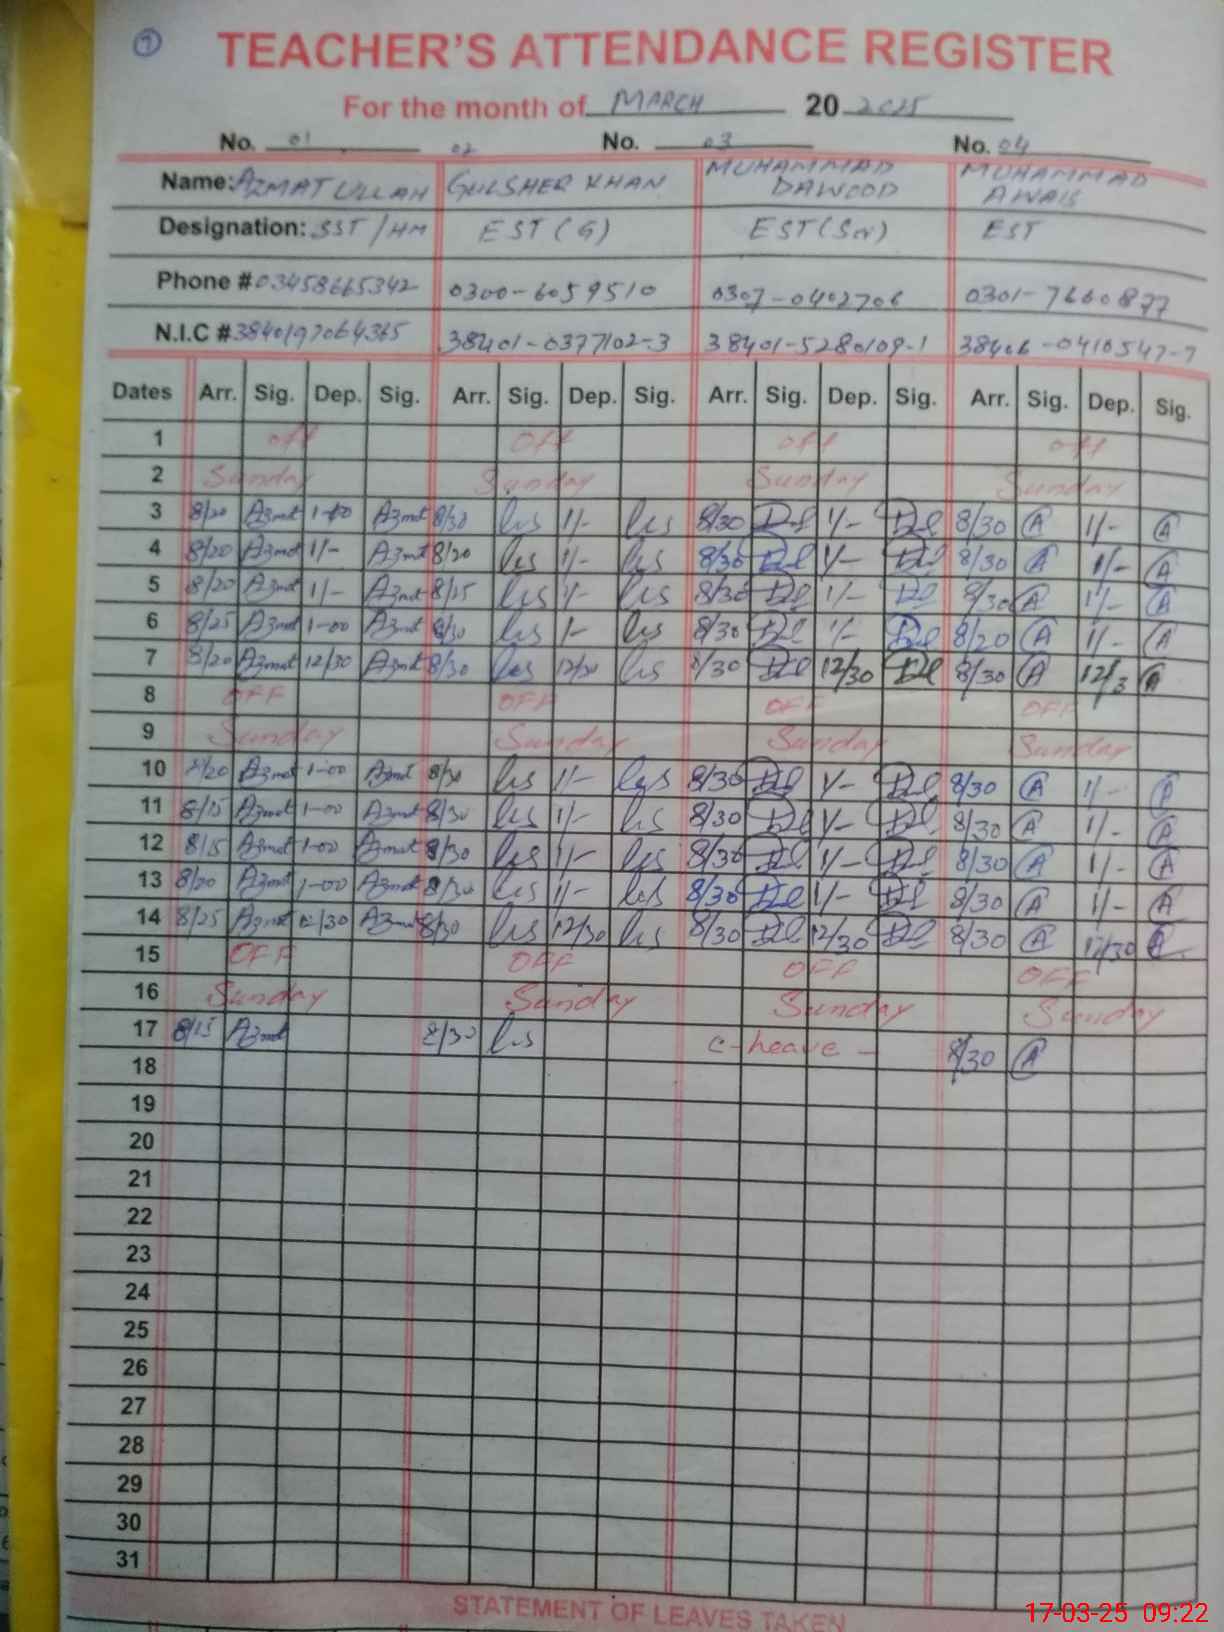 1
TEACHER'S ATTENDANCE REGISTER
For the month of MARCH 20 2025
No. 01 02 No. 03 No. 04
Name: AZMAT ULLAH GULSHER KHAN MUHAMMAD DAWOOD MUHAMMAD AWAIS
Designation: SST/HM EST (G) EST (Scr) EST
Phone # 03458665342 0300-6059510 0307-0402706 0301-7660877
N.I.C # 3840197064365 38401-0377102-3 38401-5280109-1 38406-0410547-7
Dates Arr. Sig. Dep. Sig. Arr. Sig. Dep. Sig. Arr. Sig. Dep. Sig. Arr. Sig. Dep. Sig.
1 off OFF off off
2 Sunday Sunday Sunday Sunday
3 8/20 Azmat 1-00 Azmat 8/30 1/- 8/30 1/- 8/30 A 1/- A
4 8/20 Azmat 1/- Azmat 8/20 1/- 8/30 1/- 8/30 A 1/- A
5 8/20 Azmat 1/- Azmat 8/25 1/- 8/30 1/- 8/30 A 1/- A
6 8/25 Azmat 1-00 Azmat 8/30 1- 8/30 1/- 8/20 A 1/- A
7 8/20 Azmat 12/30 Azmat 8/30 12/30 8/30 12/30 8/30 A 12/3 A
8 OFF OFF OFF OFF
9 Sunday Sunday Sunday Sunday
10 8/20 Azmat 1-00 Azmat 8/30 1/- 8/30 1/- 8/30 A 1/- A
11 8/15 Azmat 1-00 Azmat 8/30 1/- 8/30 1/- 8/30 A 1/- A
12 8/15 Azmat 1-00 Azmat 8/30 1/- 8/30 1/- 8/30 A 1/- A
13 8/20 Azmat 1-00 Azmat 8/30 1/- 8/30 1/- 8/30 A 1/- A
14 8/25 Azmat 12/30 Azmat 8/30 12/30 8/30 12/30 8/30 A 12/30 A
15 OFF OFF OFF OFF
16 Sunday Sunday Sunday Sunday
17 8/15 Azmat 8/30 c-Leave - 8/30 A
18
19
20
21
22
23
24
25
26
27
28
29
30
31
STATEMENT OF LEAVES TAKEN
17-03-25 09:22